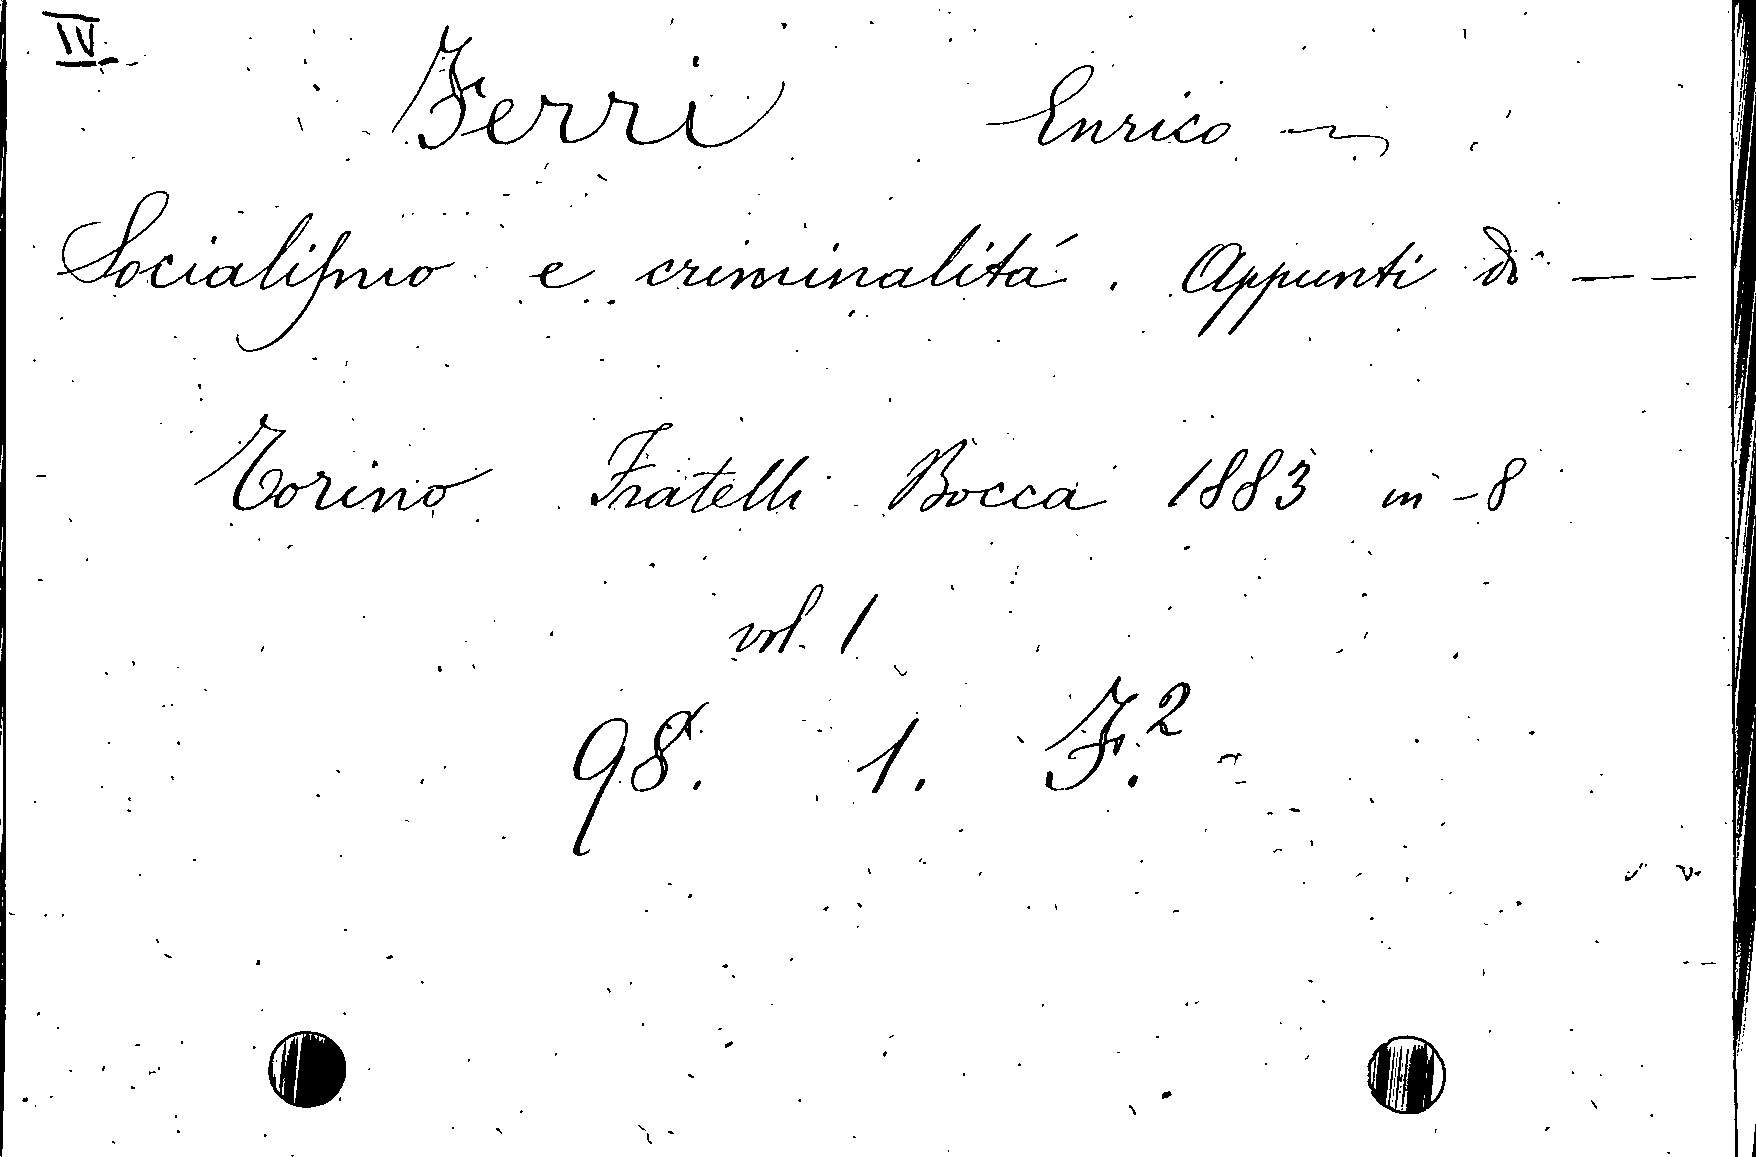 IV
Ferri Enrico ~
Socialiſmo e criminalitá. Appunti di — —
Torino Fratelli Bocca 1883 in-8
vol. 1
98. 1. F.²